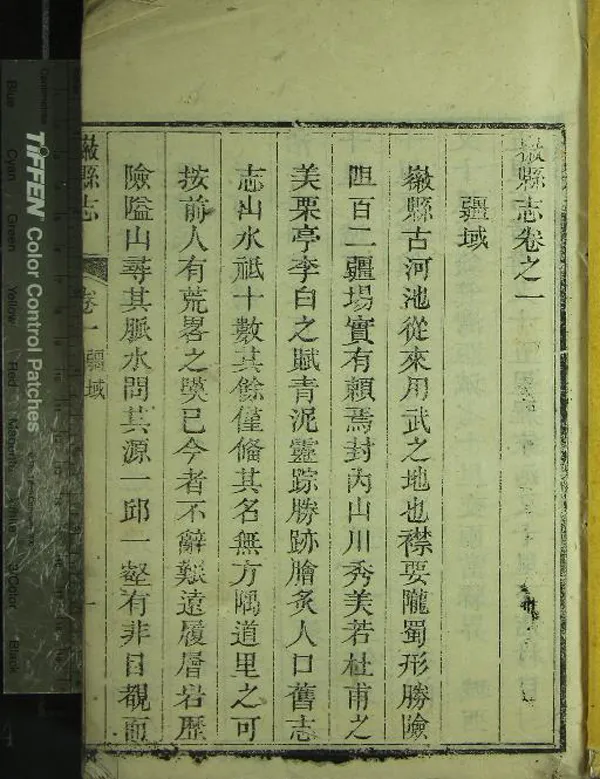 徽縣志卷之一
疆域
徽縣古河池從來用武之地也襟要隴蜀形勝險
阻百二疆場實有頼焉封內山川秀美若杜甫之
美栗亭李白之賦青泥靈踪勝跡膾炙人口舊志
志山水祗十數其餘僅俻其名無方隅道里之可
按前人有荒畧之獘已今者不辭艱遠履層岩歷
險隘山尋其脈水問其源一邱一壑有非目覩而
徽縣志
卷一
疆域
一
TIFFEN Color Control Patches
Blue
Cyan
Green
Yellow
Red
Magenta
White
3/Color
Black